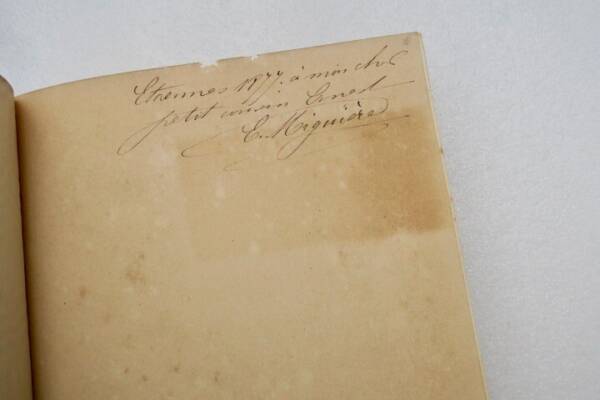 Etrennes 1877. à mon cher
petit cousin Ernest
E. Miguière